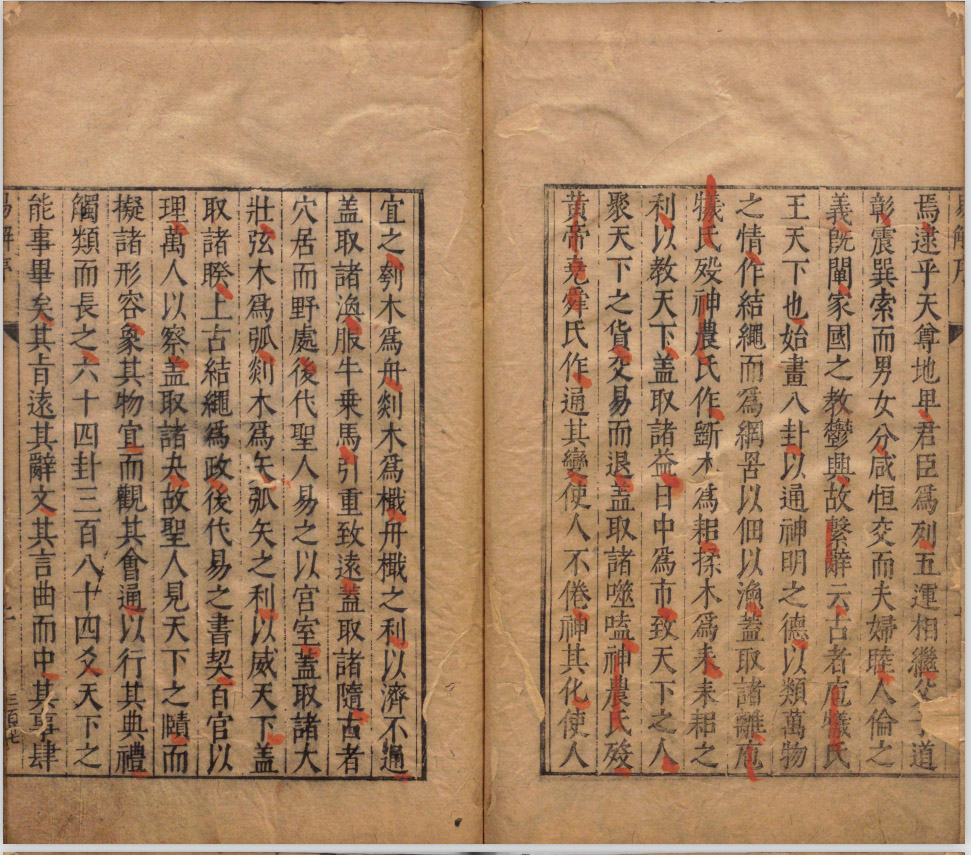 易解序
焉逮乎天尊地卑君臣爲列五運相繼父子道
彰震巽索而男女分咸恒交而夫婦睦人倫之
義旣闡家國之教鬱興故繫辭云古者庖犧氏
王天下也始畫八卦以通神明之德以類萬物
之情作結繩而爲網罟以佃以漁蓋取諸離庖
犧氏歿神農氏作斵木爲耜揉木爲耒耒耜之
利以教天下蓋取諸益日中爲市致天下之人
聚天下之貨交易而退蓋取諸噬嗑神農氏歿
黃帝堯舜氏作通其變使人不倦神其化使人
宜之刳木爲舟剡木爲檝舟檝之利以濟不通
蓋取諸渙服牛乗馬引重致遠蓋取諸隨古者
穴居而野處後代聖人易之以宮室蓋取諸大
壯弦木爲弧剡木爲矢弧矢之利以威天下蓋
取諸睽上古結繩爲政後代易之書契百官以
理萬人以察蓋取諸夬故聖人見天下之賾而
擬諸形容象其物宜而觀其會通以行其典禮
觸類而長之六十四卦三百八十四爻天下之
能事畢矣其旨遠其辭文其言曲而中其事肆
易解序